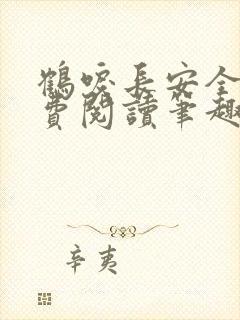 鶴唳長安全
費閱讀筆趣
辛夷